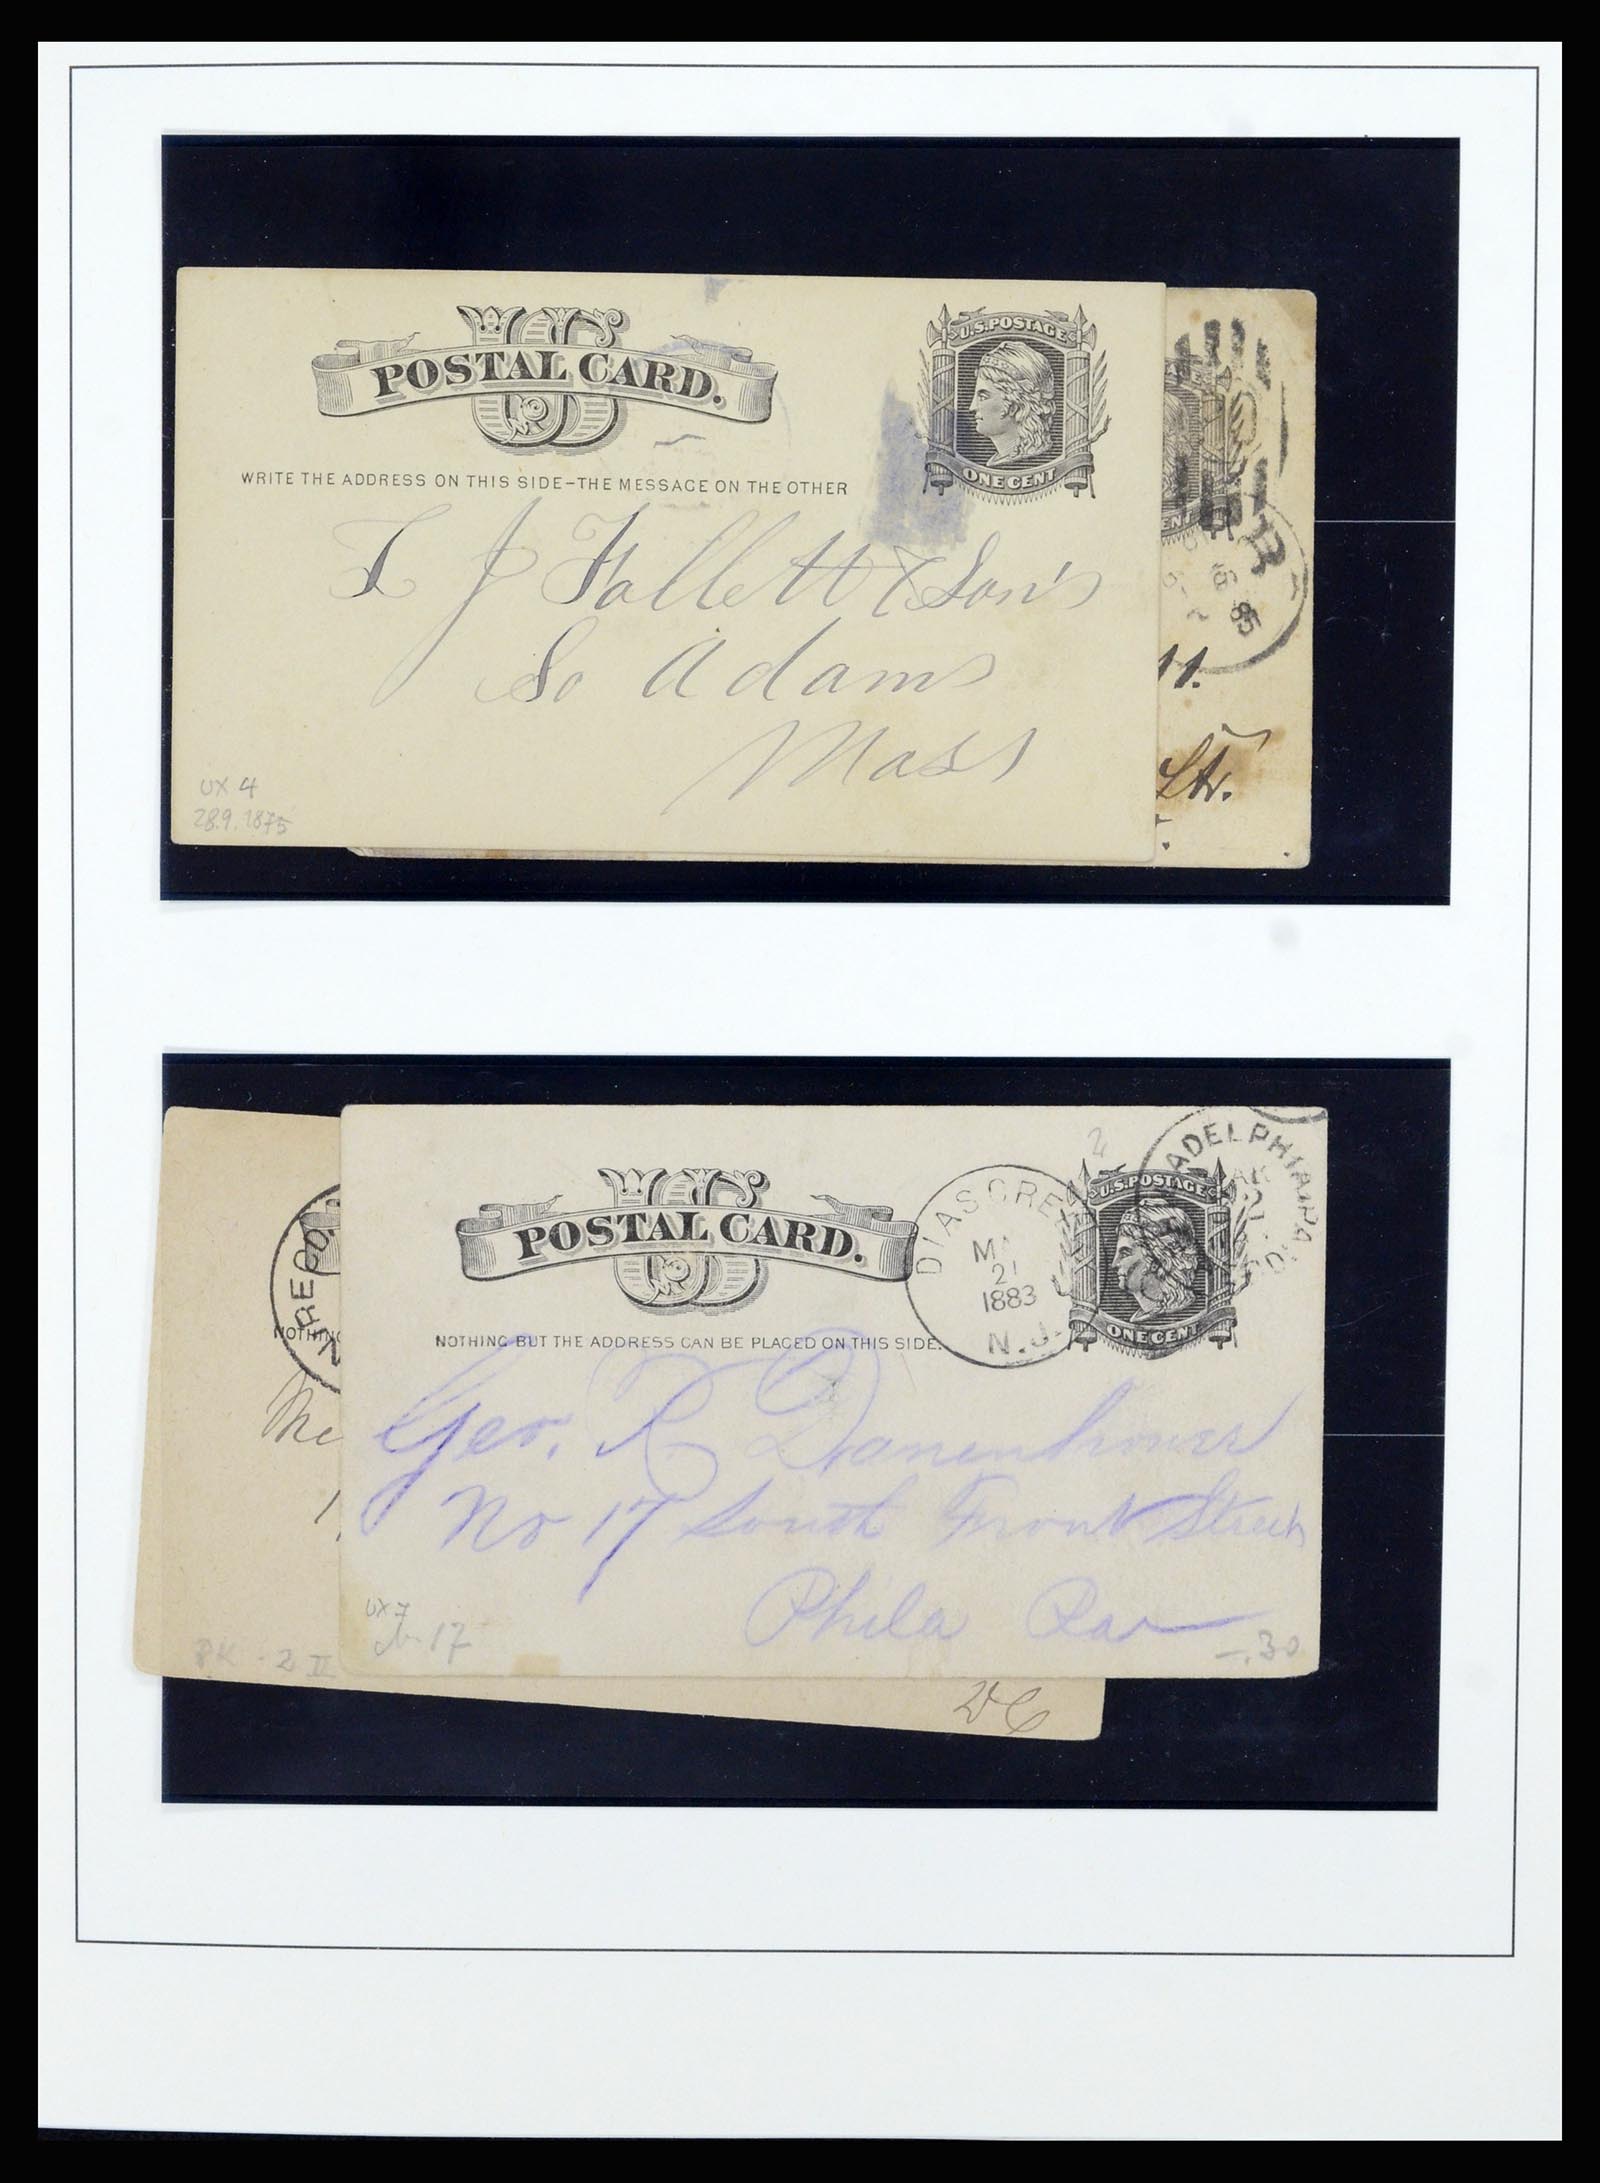 US
POSTAL CARD.
U.S. POSTAGE
ONE CENT
WRITE THE ADDRESS ON THIS SIDE-THE MESSAGE ON THE OTHER
J Follett & Son's
So Adams
Mass
UX 4
28.9.1875
85
11.
Str.
US
POSTAL CARD.
U.S. POSTAGE
ONE CENT
DIAS CREE
21
1883
N.J.
ADELPHIA PA
NOTHING BUT THE ADDRESS CAN BE PLACED ON THIS SIDE.
Geo. R Danenhower
No 17 South Front Street
Phila Pa
UX 7
17
-.30
REC'D.
NOTHING
PK - 2 II
DC